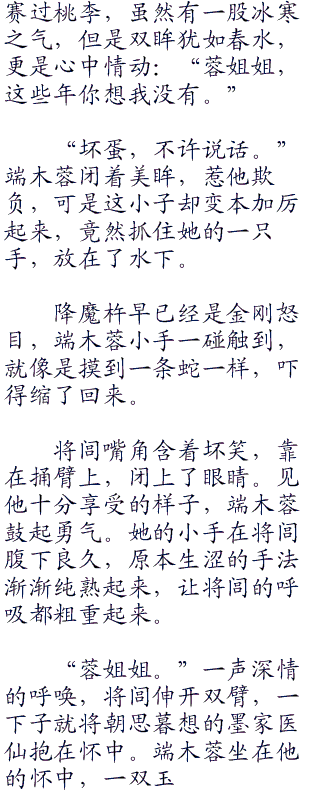 赛过桃李，虽然有一股冰寒
之气，但是双眸犹如春水，
更是心中情动：“蓉姐姐，
这些年你想我没有。”
“坏蛋，不许说话。”
端木蓉闭着美眸，惹他欺
负，可是这小子却变本加厉
起来，竟然抓住她的一只
手，放在了水下。
降魔杵早已经是金刚怒
目，端木蓉小手一碰触到，
就像是摸到一条蛇一样，吓
得缩了回来。
将闾嘴角含着坏笑，靠
在捅臂上，闭上了眼睛。见
他十分享受的样子，端木蓉
鼓起勇气。她的小手在将闾
腹下良久，原本生涩的手法
渐渐纯熟起来，让将闾的呼
吸都粗重起来。
“蓉姐姐。”一声深情
的呼唤，将闾伸开双臂，一
下子就将朝思暮想的墨家医
仙抱在怀中。端木蓉坐在他
的怀中，一双玉